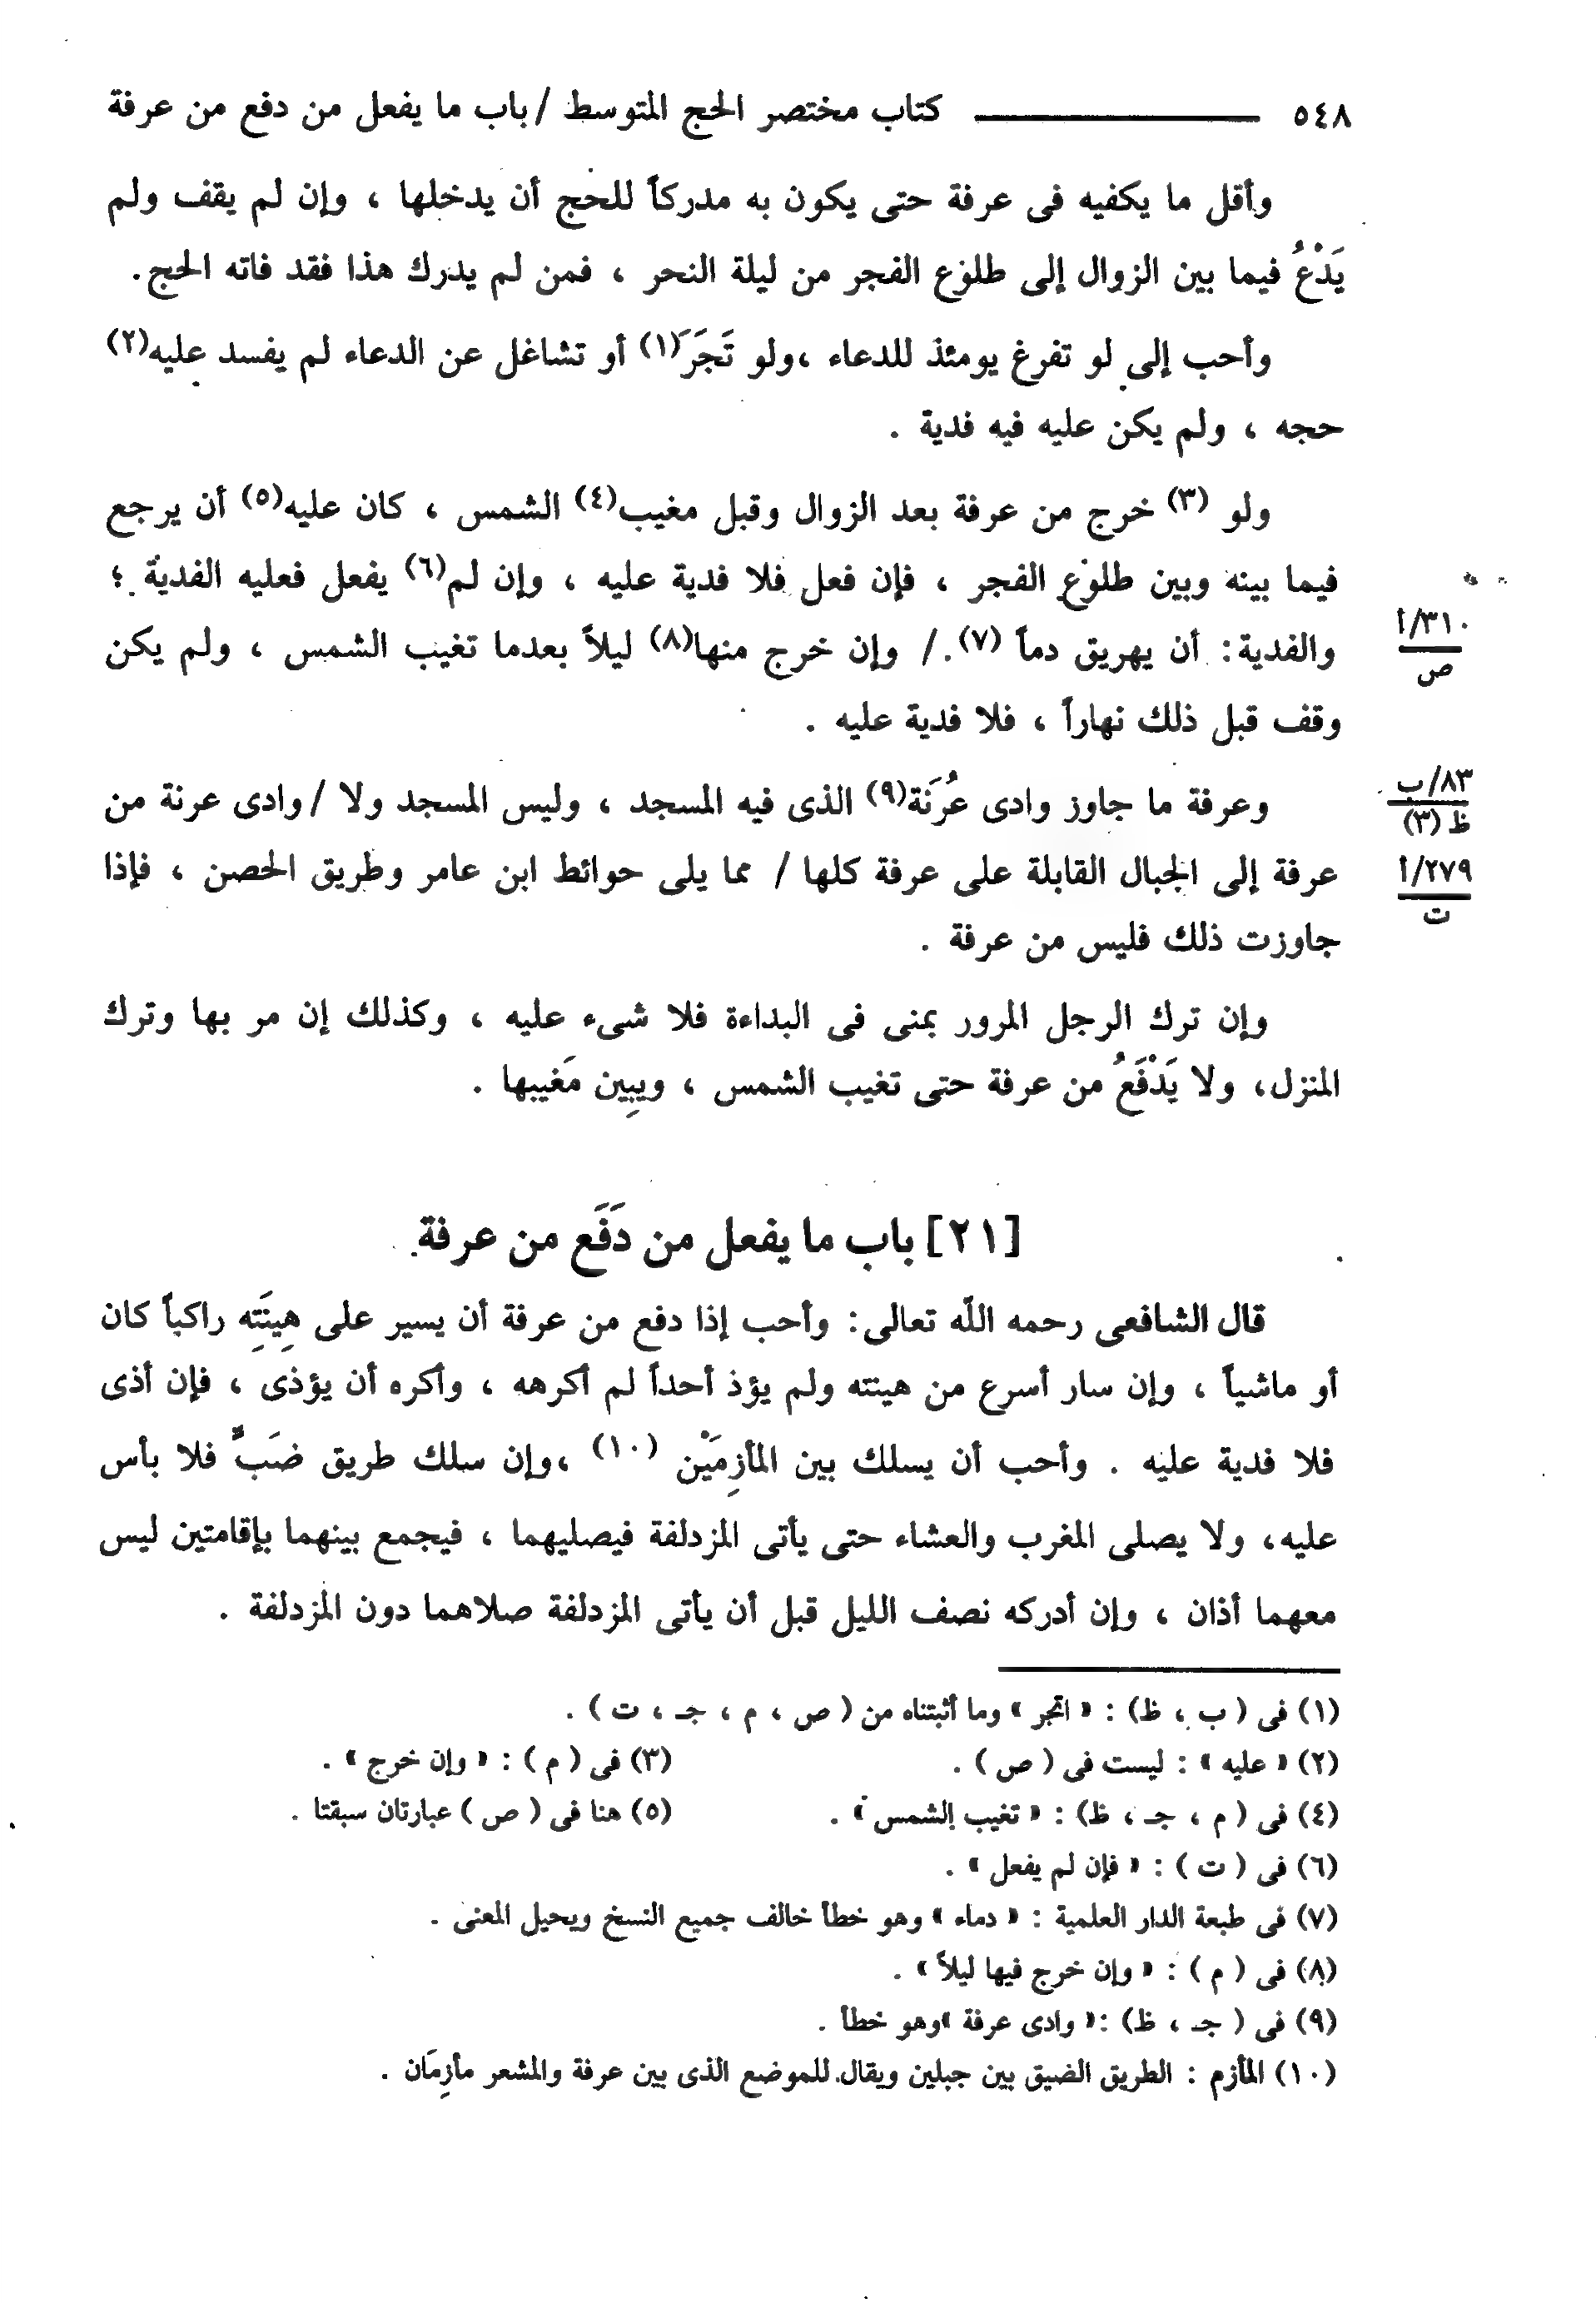 ٥٤٨ كتاب مختصر الحج المتوسط / باب ما يفعل من دفع من عرفة
وأقل ما يكفيه فى عرفة حتى يكون به مدركاً للحج أن يدخلها ، وإن لم يقف ولم
يَدْعُ فيما بين الزوال إلى طلوع الفجر من ليلة النحر ، فمن لم يدرك هذا فقد فاته الحج.
وأحب إلى لو تفرغ يومئذ للدعاء ،ولو تَجَرَ(١) أو تشاغل عن الدعاء لم يفسد عليه(٢)
حجه ، ولم يكن عليه فيه فدية .
ولو (٣) خرج من عرفة بعد الزوال وقبل مغيب(٤) الشمس ، كان عليه(٥) أن يرجع
فيما بينه وبين طلوع الفجر ، فإن فعل فلا فدية عليه ، وإن لم(٦) يفعل فعليه الفدية ؛
والفدية: أن يهريق دماً (٧)./ وإن خرج منها(٨) ليلاً بعدما تغيب الشمس ، ولم يكن
٣١٠/أ
ص
وقف قبل ذلك نهاراً ، فلا فدية عليه .
وعرفة ما جاوز وادى عُرَنَة(٩) الذى فيه المسجد ، وليس المسجد ولا /وادى عرنة من
٨٣/ب
ظ (٣)
عرفة إلى الجبال القابلة على عرفة كلها / مما يلى حوائط ابن عامر وطريق الحصن ، فإذا
٢٧٩/أ
ت
جاوزت ذلك فليس من عرفة .
وإن ترك الرجل المرور بمنى فى البداءة فلا شىء عليه ، وكذلك إن مر بها وترك
المنزل، ولا يَدْفَعُ من عرفة حتى تغيب الشمس ، ويبِين مَغيبها .
[٢١] باب ما يفعل من دَفَع من عرفة
قال الشافعى رحمه الله تعالى: وأحب إذا دفع من عرفة أن يسير على هِينَتِه راكباً كان
أو ماشياً ، وإن سار أسرع من هينته ولم يؤذ أحداً لم أكرهه ، وأكره أن يؤذى ، فإن أذى
فلا فدية عليه . وأحب أن يسلك بين المأزِمَيْن (١٠) ،وإن سلك طريق ضَبٍّ فلا بأس
عليه، ولا يصلى المغرب والعشاء حتى يأتى المزدلفة فيصليهما ، فيجمع بينهما بإقامتين ليس
معهما أذان ، وإن أدركه نصف الليل قبل أن يأتى المزدلفة صلاهما دون المزدلفة .
(١) فى ( ب ، ظ) : « اتجر » وما أثبتناه من ( ص ، م ، جـ ، ت ) .
(٢) « عليه » : ليست فى ( ص ) . (٣) فى ( م ) : « وإن خرج » .
(٤) فى ( م ، جـ ، ظ) : « تغيب الشمس » . (٥) هنا فى ( ص ) عبارتان سبقتا .
(٦) فى ( ت ) : « فإن لم يفعل » .
(٧) فى طبعة الدار العلمية : « دماء » وهو خطأ خالف جميع النسخ ويحيل المعنى .
(٨) فى ( م ) : « وإن خرج فيها ليلاً » .
(٩) فى ( جـ ، ظ) :« وادى عرفة »وهو خطأ .
(١٠) المأزم : الطريق الضيق بين جبلين ويقال للموضع الذى بين عرفة والمشعر مأزِمَان .